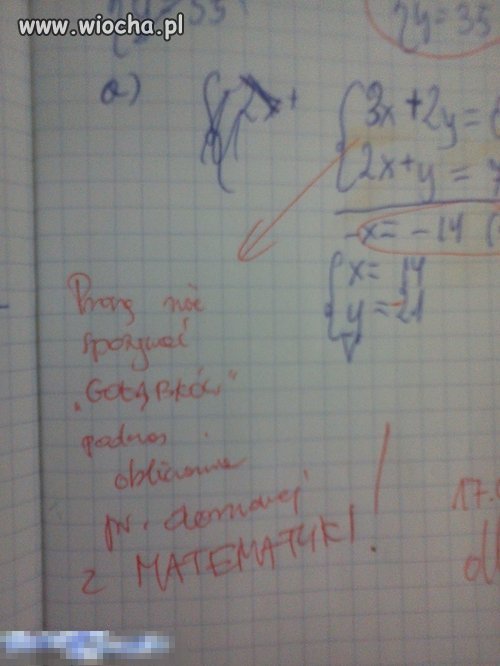 www.wiocha.pl
y = 35
a)
2x +
3x + 2y =
2x + y = 7
-x = -14
x = 14
y = -21
Proszę nie
spożywać
„GOŁĄBKÓW"
podczas
obliczania
pr. domowej
z MATEMATYKI!
17.